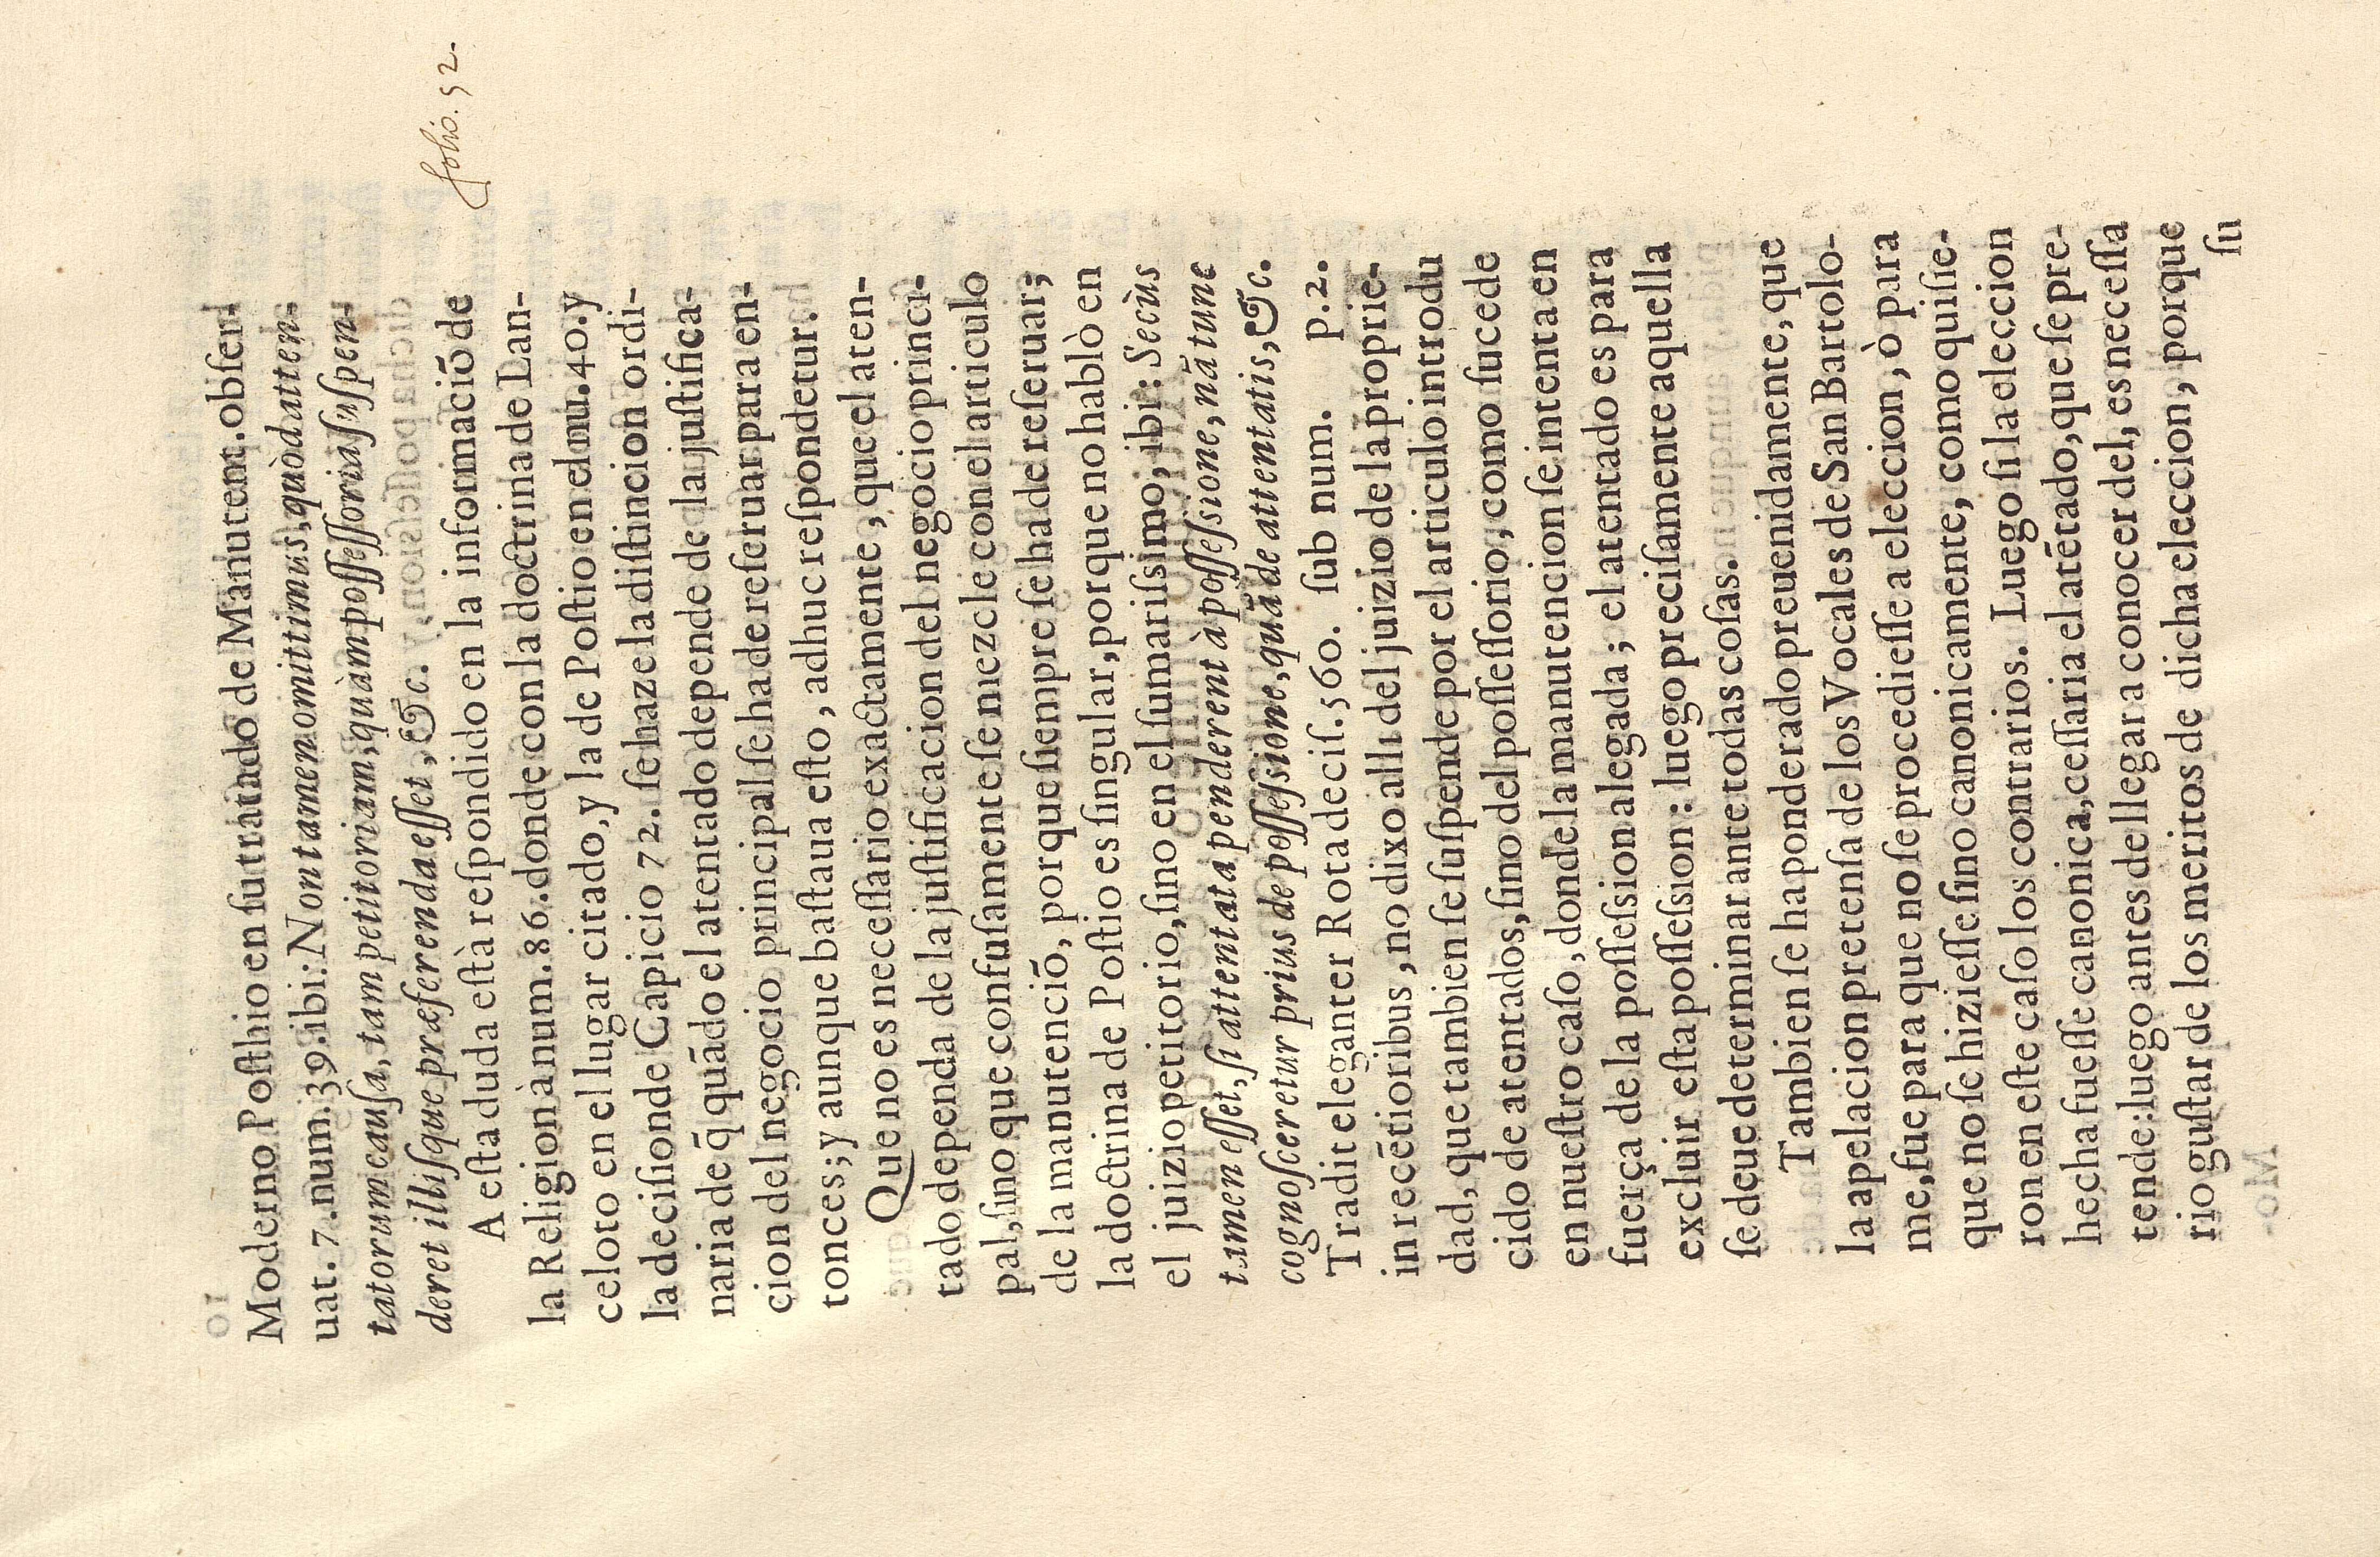 folio. 52.
Moderno Posthio en su tratado de Manutem. obser-
uat. 7. num. 39. ibi: Non tamen omittimus, quòd atten-
tatorum causa, tam petitoriam, quàm possessoria suspen-
deret illisque præferenda esset, &c.
A esta duda està respondido en la informaciõ de
la Religion à num. 86. donde con la doctrina de Lan-
celoto en el lugar citado, y la de Postio en el nu. 40. y
la decision de Capicio 72. se haze la distincion ordi-
naria de q̃ quãdo el atentado depende de la justifica-
cion del negocio principal se ha de reseruar para en-
tonces; y aunque bastaua esto, adhuc respondetur.
Que no es necessario exactamente, que el aten-
tado dependa de la justificacion del negocio princi-
pal, sino que confusamente se mezcle con el articulo
de la manutenciõ, porque siempre se ha de reseruar;
la doctrina de Postio es singular, porque no hablò en
el juizio petitorio, sino en el sumarissimo, ibi: Secùs
tamen esset, si attentata penderent à possessione, nã tunc
cognosceretur prius de possessione, quã de attentatis, &c.
Tradit eleganter Rota decis. 560. sub num. p. 2.
in recẽtioribus, no dixo alli del juizio de la proprie-
dad, que tambien se suspende por el articulo introdu
cido de atentados, sino del possessorio, como sucede
en nuestro caso, donde la manutencion se intenta en
fuerça de la possession alegada; el atentado es para
excluir esta possession: luego precisamente aquella
se deue determinar ante todas cosas.
Tambien se ha ponderado preuenidamente, que
la apelacion pretensa de los Vocales de San Bartolo-
me, fue para que no se procediesse a eleccion, ò para
que no se hiziesse sino canonicamente, como quisie-
ron en este caso los contrarios. Luego si la eleccion
hecha fuesse canonica, cessaria el atẽtado, que se pre-
tende: luego antes de llegar a conocer del, es necessa
rio gustar de los meritos de dicha eleccion, porque
su